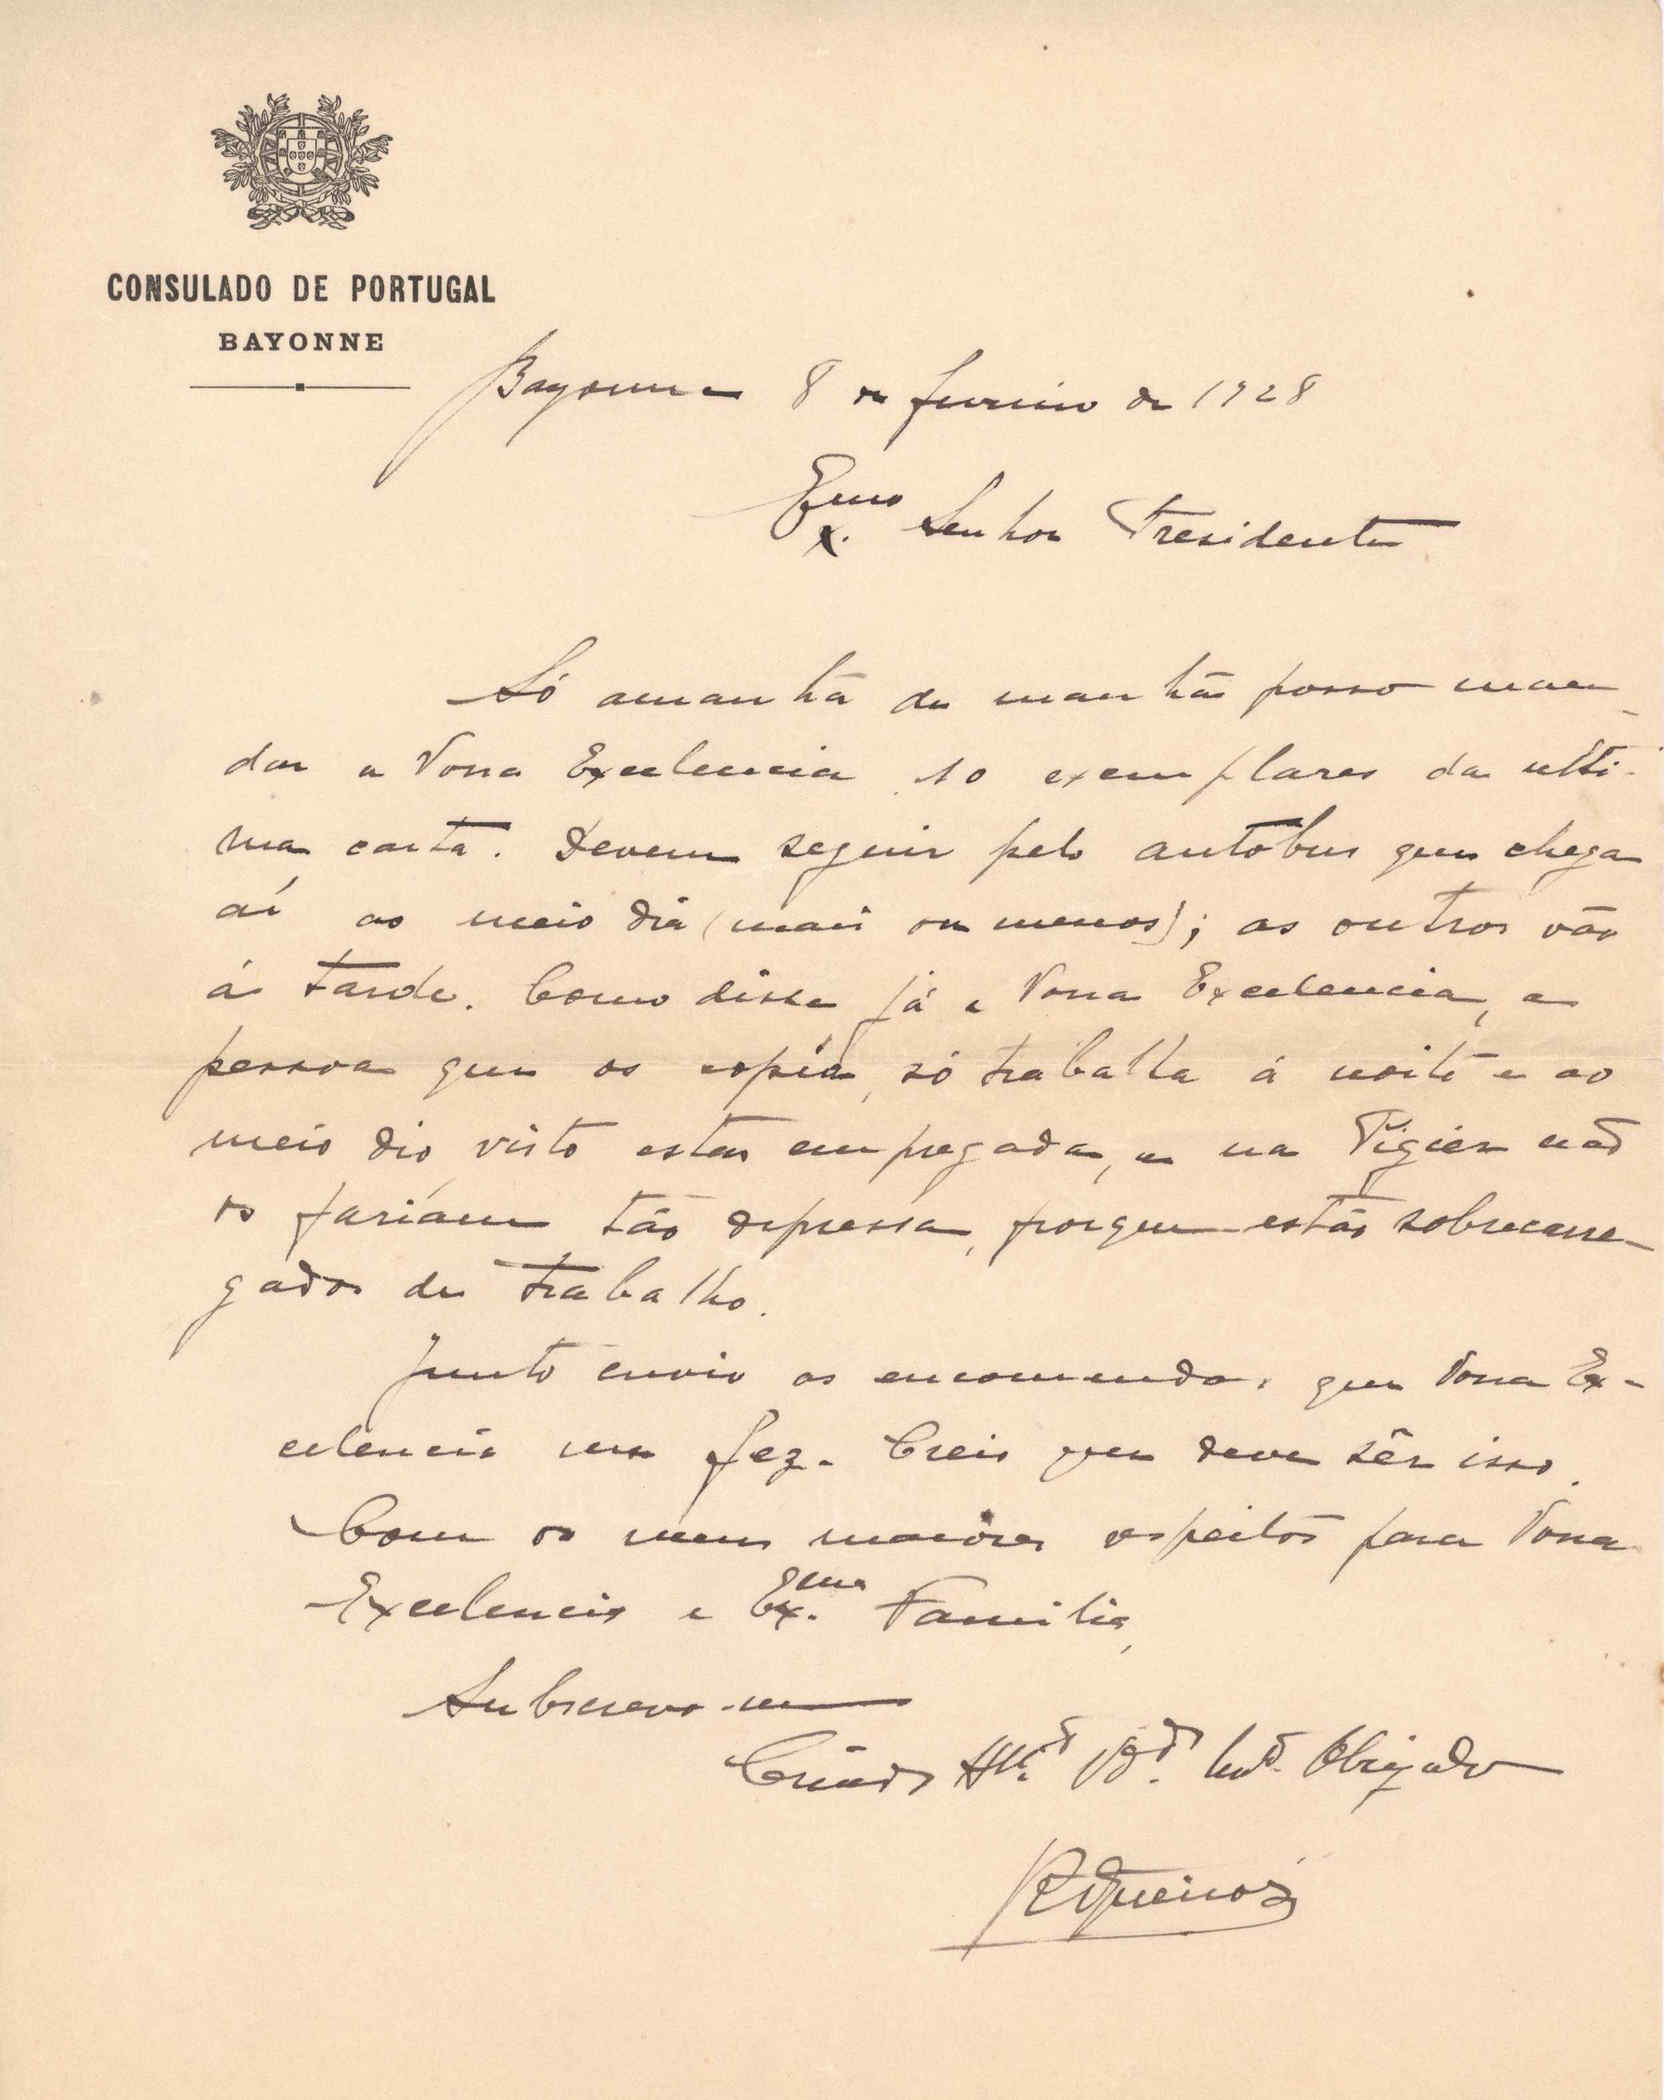 CONSULADO DE PORTUGAL
BAYONNE
Bayonne 8 de fevereiro de 1928
Exmo. Senhor Presidente
Só amanhã de manhãs posso man-
dar a Vossa Excelencia 10 exemplares da ulti-
ma carta. Devem seguir pelo autobus que chega
aí ao meio dia (mais ou menos); as outros vão
á tarde. Como disse já a Vossa Excelencia, a
pessoa que os copía, só trabalha á noite e ao
meio dia visto estar empregada, e na Pigier não
os fariám tão depressa, porque estão sobrecarre-
gados de trabalho.
Junto envio as encomendas que Vossa Ex-
celencia me fez. Creio que deve sêr isso.
Com os meus maiores respeitos para Vossa
Excelencia e Exma. Familia,
Subscrevo-me
Criado Att.º Vg.dr Mt.º Obrigado